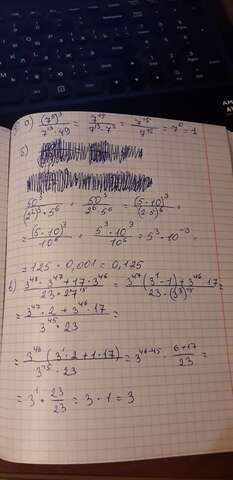 а) (7⁵)³ / 7¹³ · 49 = 7¹⁵ / 7¹³ · 7² = 7¹⁵ / 7¹⁵ = 7⁰ = 1
б)
50³ / (2²)³ · 5⁶ = 50³ / 2⁶ · 5⁶ = (5·10)³ / (2·5)⁶ =
= (5·10)³ / 10⁶ = 5³·10³ / 10⁶ = 5³ · 10⁻³ =
= 125 · 0,001 = 0,125
в) 3⁴⁸ - 3⁴⁷ + 17·3⁴⁶ / 23 · 27¹⁵ = 3⁴⁷(3¹-1) + 3⁴⁶·17 / 23 · (3³)¹⁵ =
= 3⁴⁷ · 2 + 3⁴⁶ · 17 / 3⁴⁵ · 23 =
= 3⁴⁶(3¹·2 + 1·17) / 3⁴⁵ · 23 = 3⁴⁶⁻⁴⁵ · 6+17 / 23 =
= 3¹ · 23 / 23 = 3 · 1 = 3